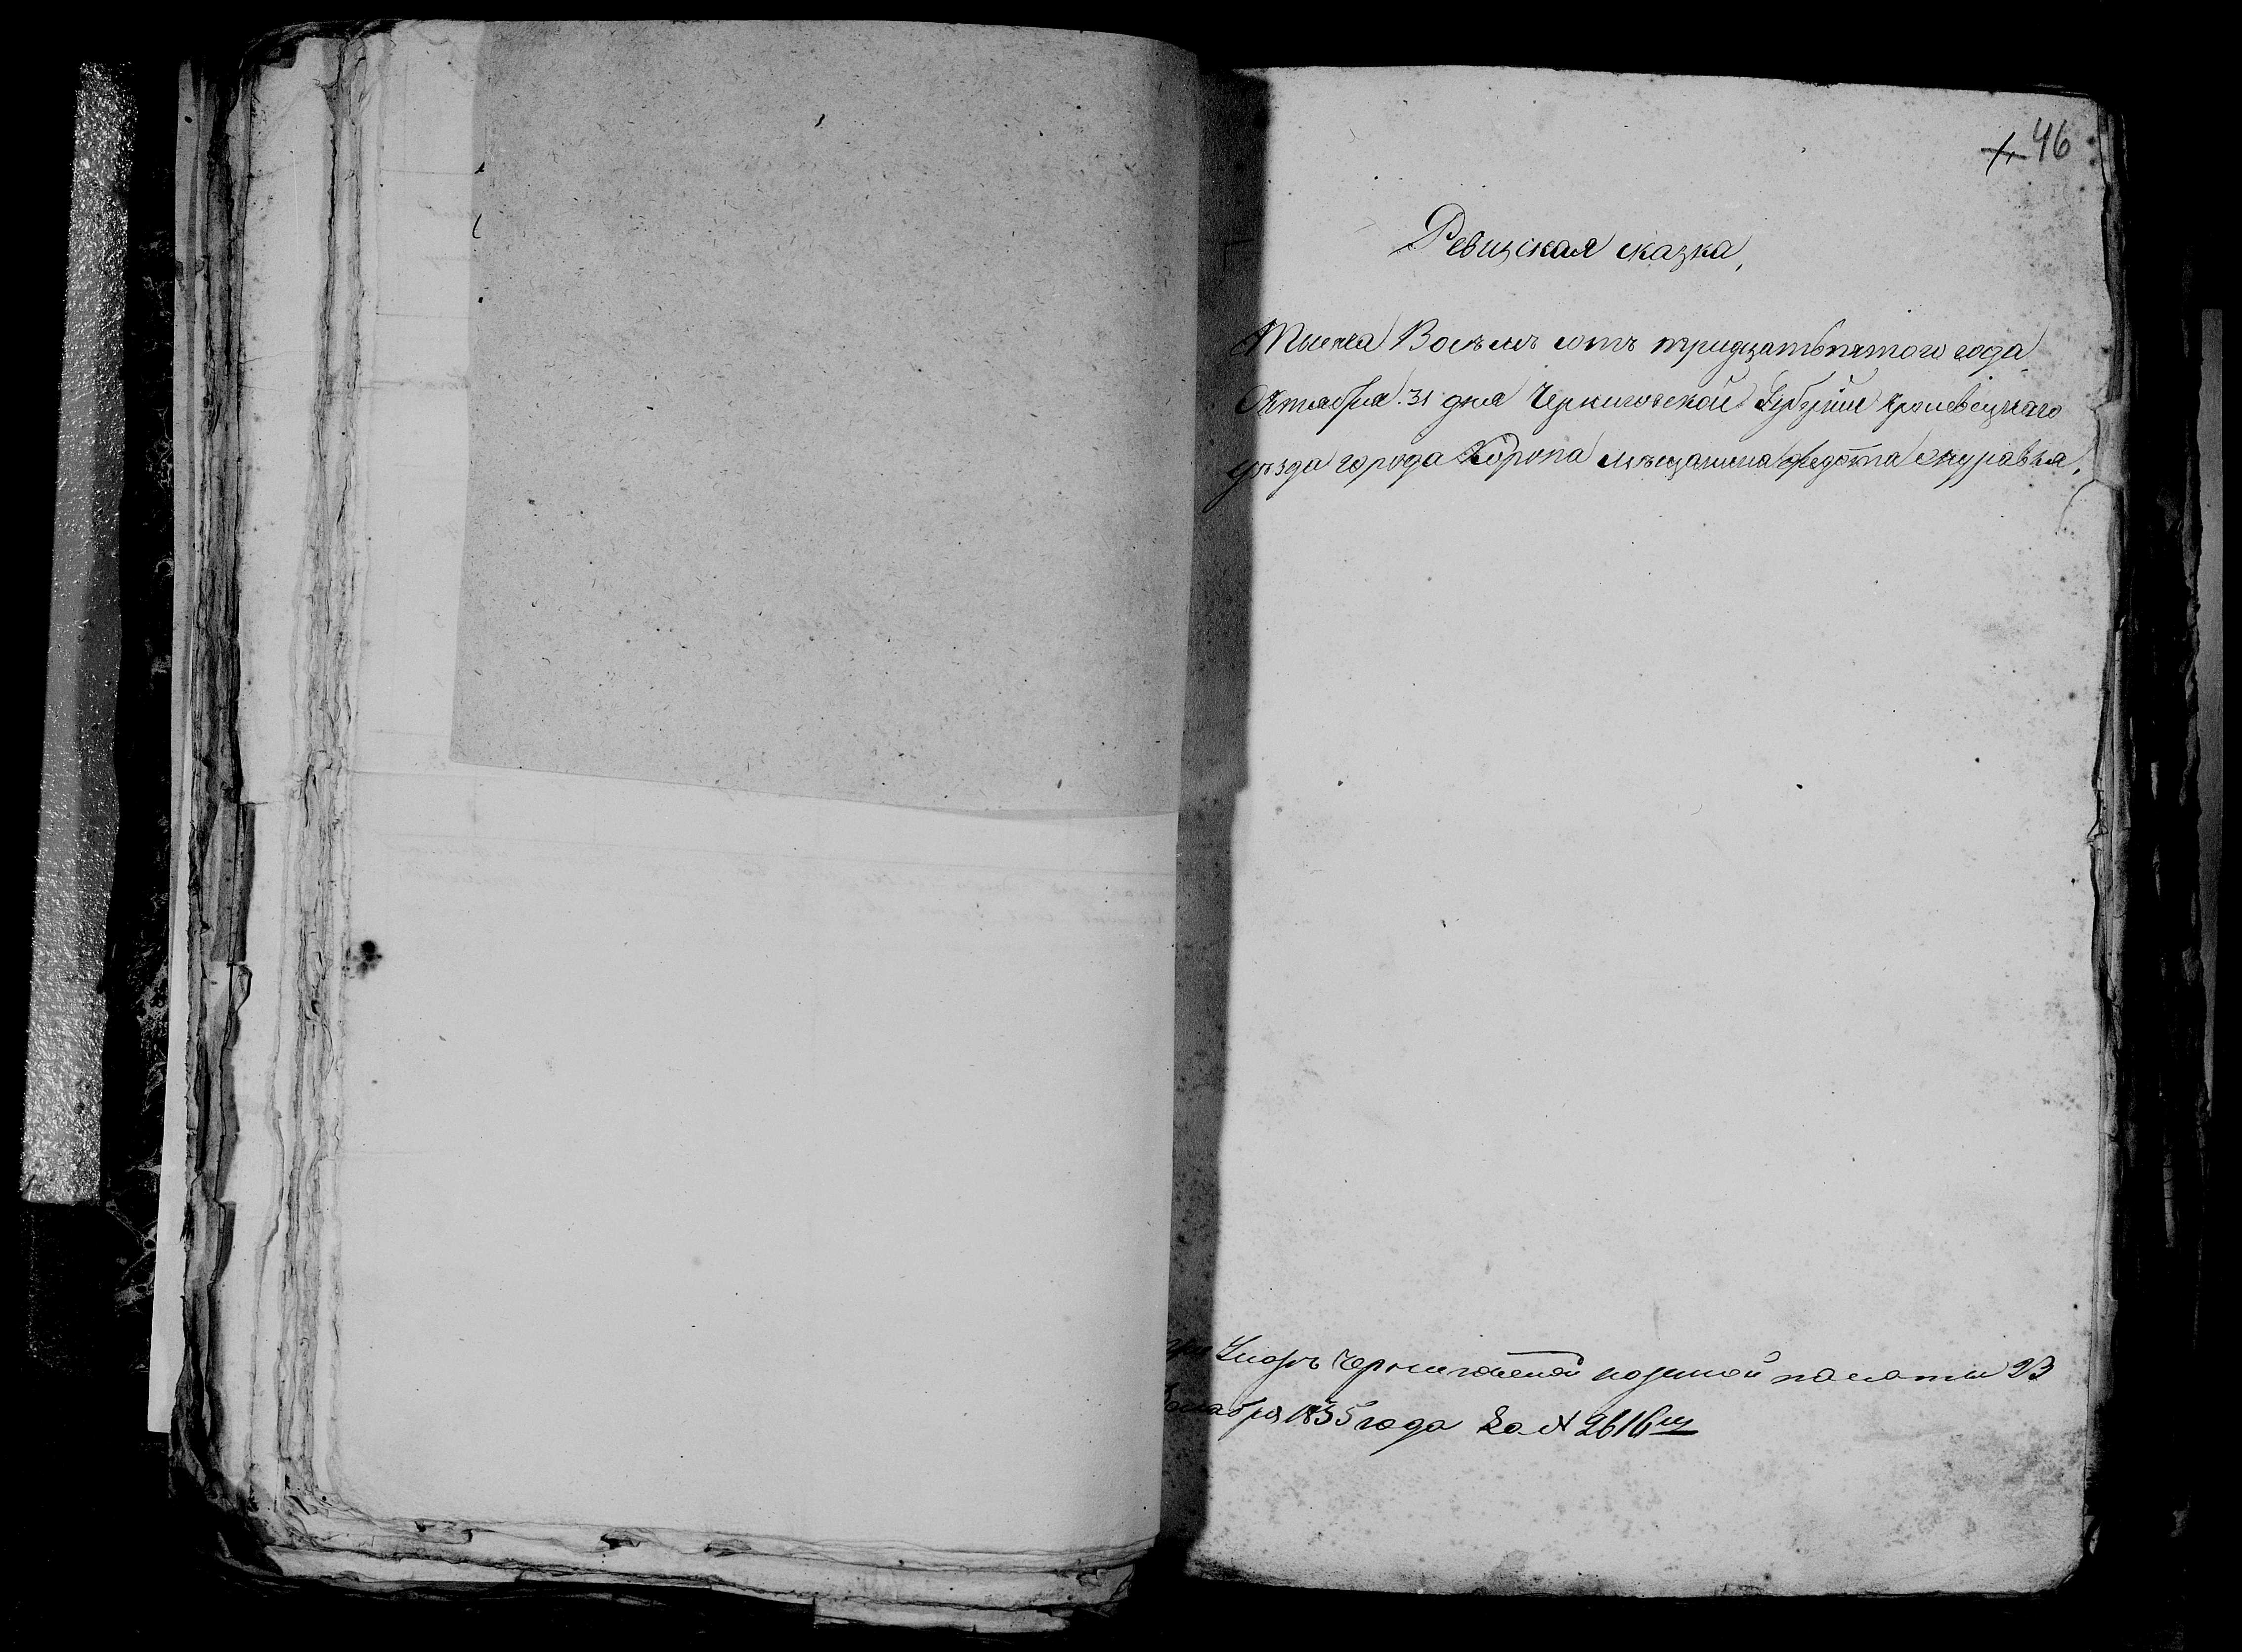 46
Ревизская сказка,
Тысяча Восемь сотъ тридцать пятого года
Октября 31 дня Черниговской Губерніи Кролевецкаго
уѣзда города Коропа мѣщанина Федота Журавля,
Указъ Черниговской казенной палаты 23
1835 года За № 2616